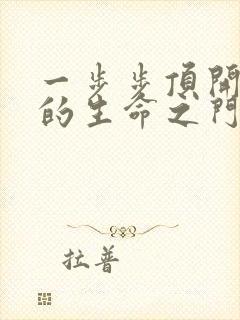 一步步頂開
的生命之門
拉普